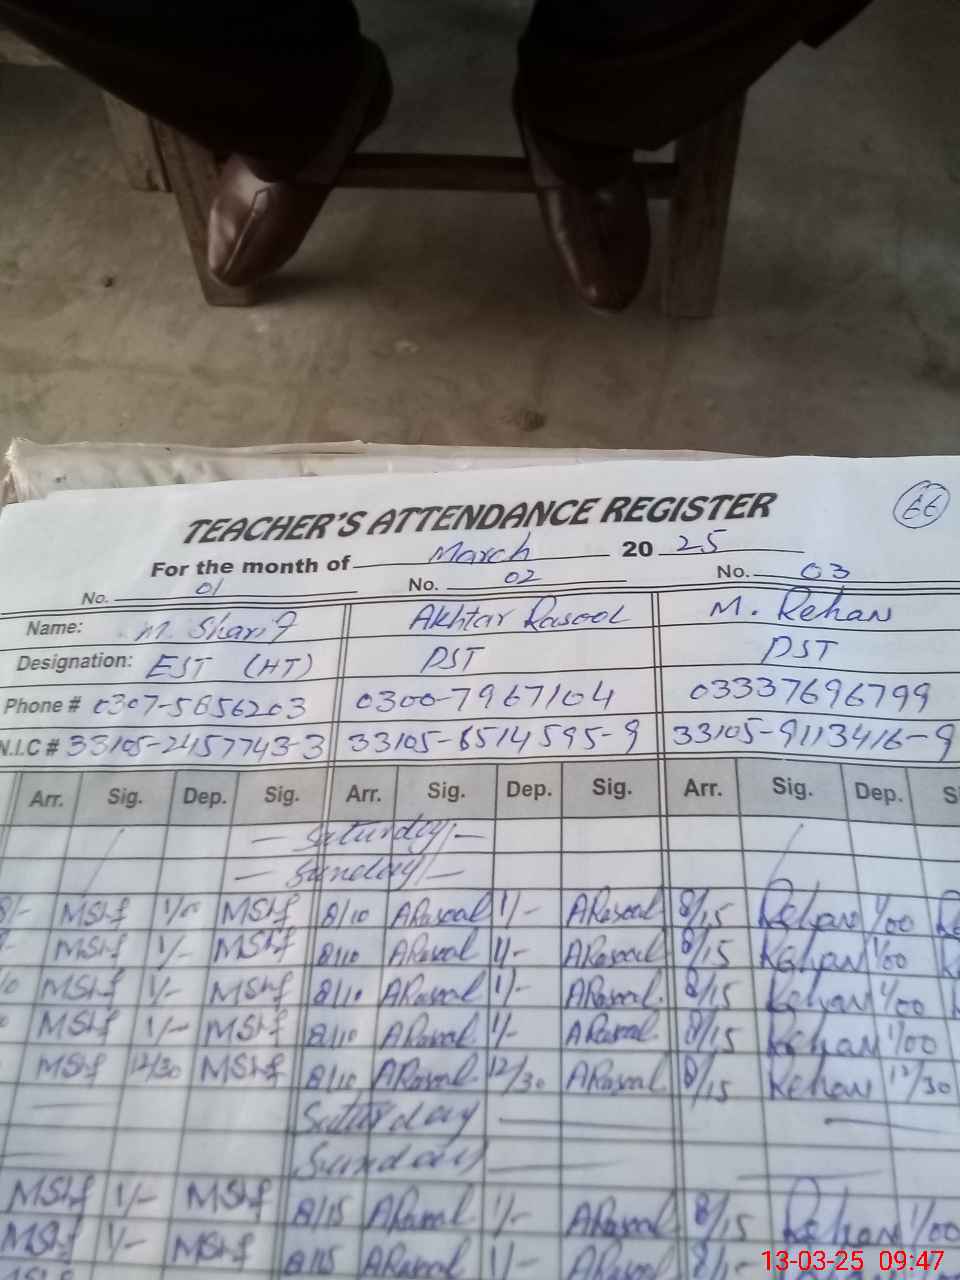 TEACHER'S ATTENDANCE REGISTER
66
For the month of March 2025
No. 01 No. 02 No. 03
Name: M. Sharif Akhtar Rasool M. Rehan
Designation: EST (HT) PST PST
Phone # 0307-5656203 0300-7967104 03337696799
N.I.C # 33105-2457743-3 33105-6514595-9 33105-9113416-9
Arr. Sig. Dep. Sig. Arr. Sig. Dep. Sig. Arr. Sig. Dep. S
— Saturday —
— Sunday —
8/- MShf 1/00 MShf 8/10 ARasool 1/- ARasool 8/15 Rehan 1/00
MShf 1/- MShf 8/10 ARasool 1/- ARasool 8/15 Rehan 1/00
MShf 1/- MShf 8/10 ARasool 1/- ARasool 8/15 Rehan 1/00
MShf 1/- MShf 8/10 ARasool 1/- ARasool 8/15 Rehan 1/00
MShf 12/30 MShf 8/10 ARasool 12/30 ARasool 8/15 Rehan 12/30
Saturday
Sunday
MShf 1/- MShf 8/15 ARasool 1/- ARasool 8/15 Rehan 1/00
MShf 1/- MShf 8/15 ARasool 1/- ARasool
13-03-25 09:47